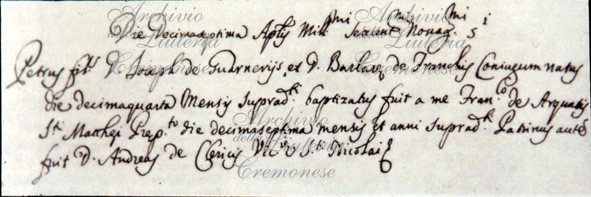 Die decimaseptima Aplis Mill.mi Sexcent.mi Nonag.mi 5.i
Petrus fil.s D. Joseph de Guarnerijs, et D. Barbar. de Franchis Coniugum natus
die decimaquarta Mensis suprad.ti baptizatus fuit a me Fran.co de Arquatis
S.ti Matthei Prep.to die decimaseptima mensis et anni suprad.ti Patrinus autẽ
fuit D. Andreas de Clericis Vic. S.ti Nicolai
Archivio
della
Liuteria
Cremonese